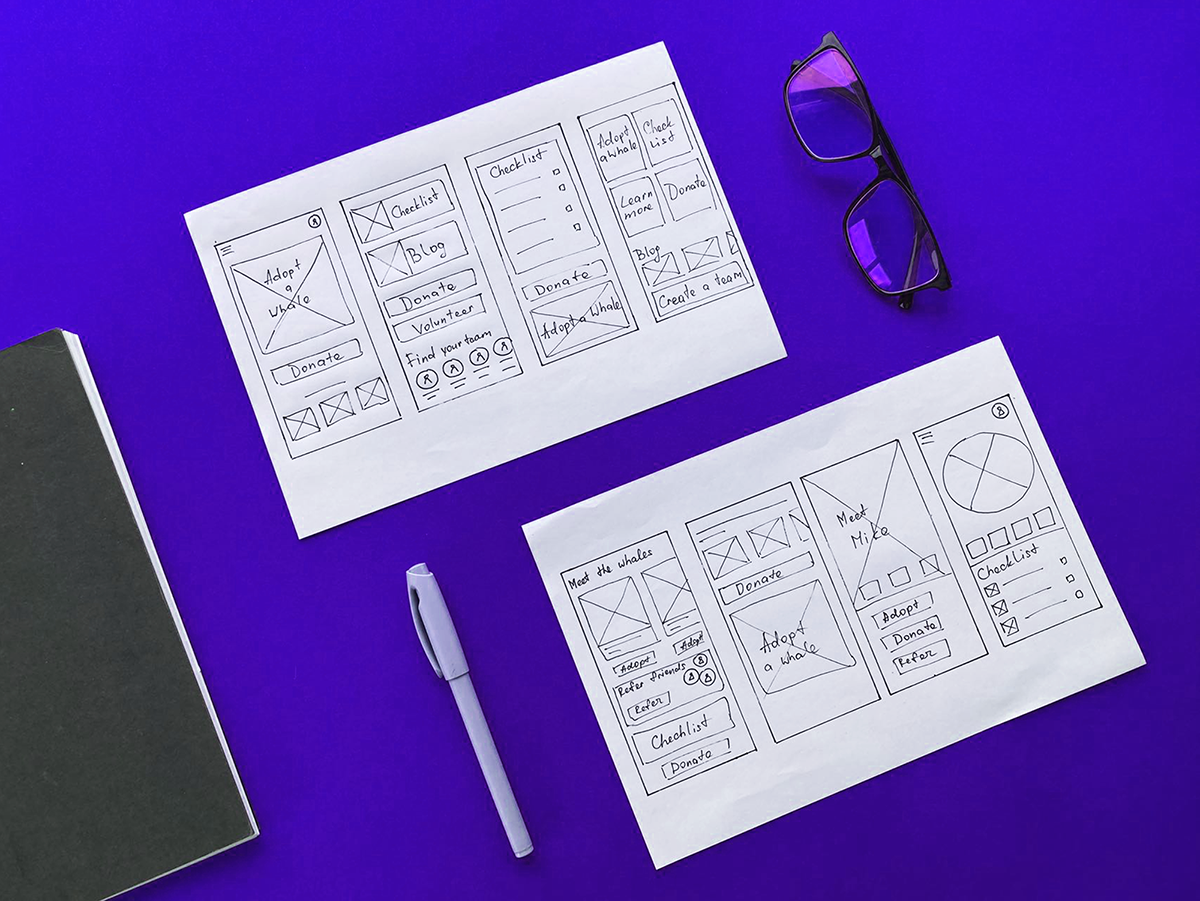 Adopt
a
whale
Donate
Checklist
Blog
Donate
Volunteer
Find your team
Checklist
Donate
Adopt a whale
Adopt
a whale
Check
List
Learn
more
Donate
Blog
Create a team
Meet the whales
Adopt
Adopt
Refer friends
Refer
Checklist
Donate
Donate
Adopt
a whale
Meet
Mike
Adopt
Donate
Refer
Checklist